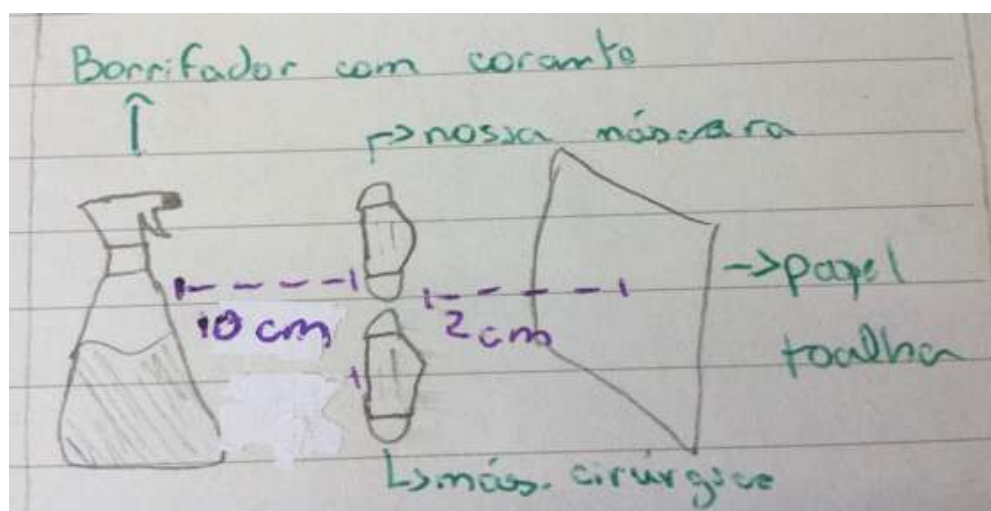 Borrifador com corante
→ nossa máscara
10 cm
2 cm
→ papel
toalha
↳ más. cirúrgica